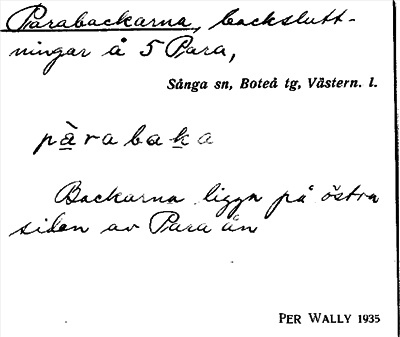 Parabackarna, backslutt-
ningar å 5 Para,
Sånga sn, Boteå tg, Västern. l.
pàrabaka
Backarna ligga på östra
sidan av Para ån
PER WALLY 1935